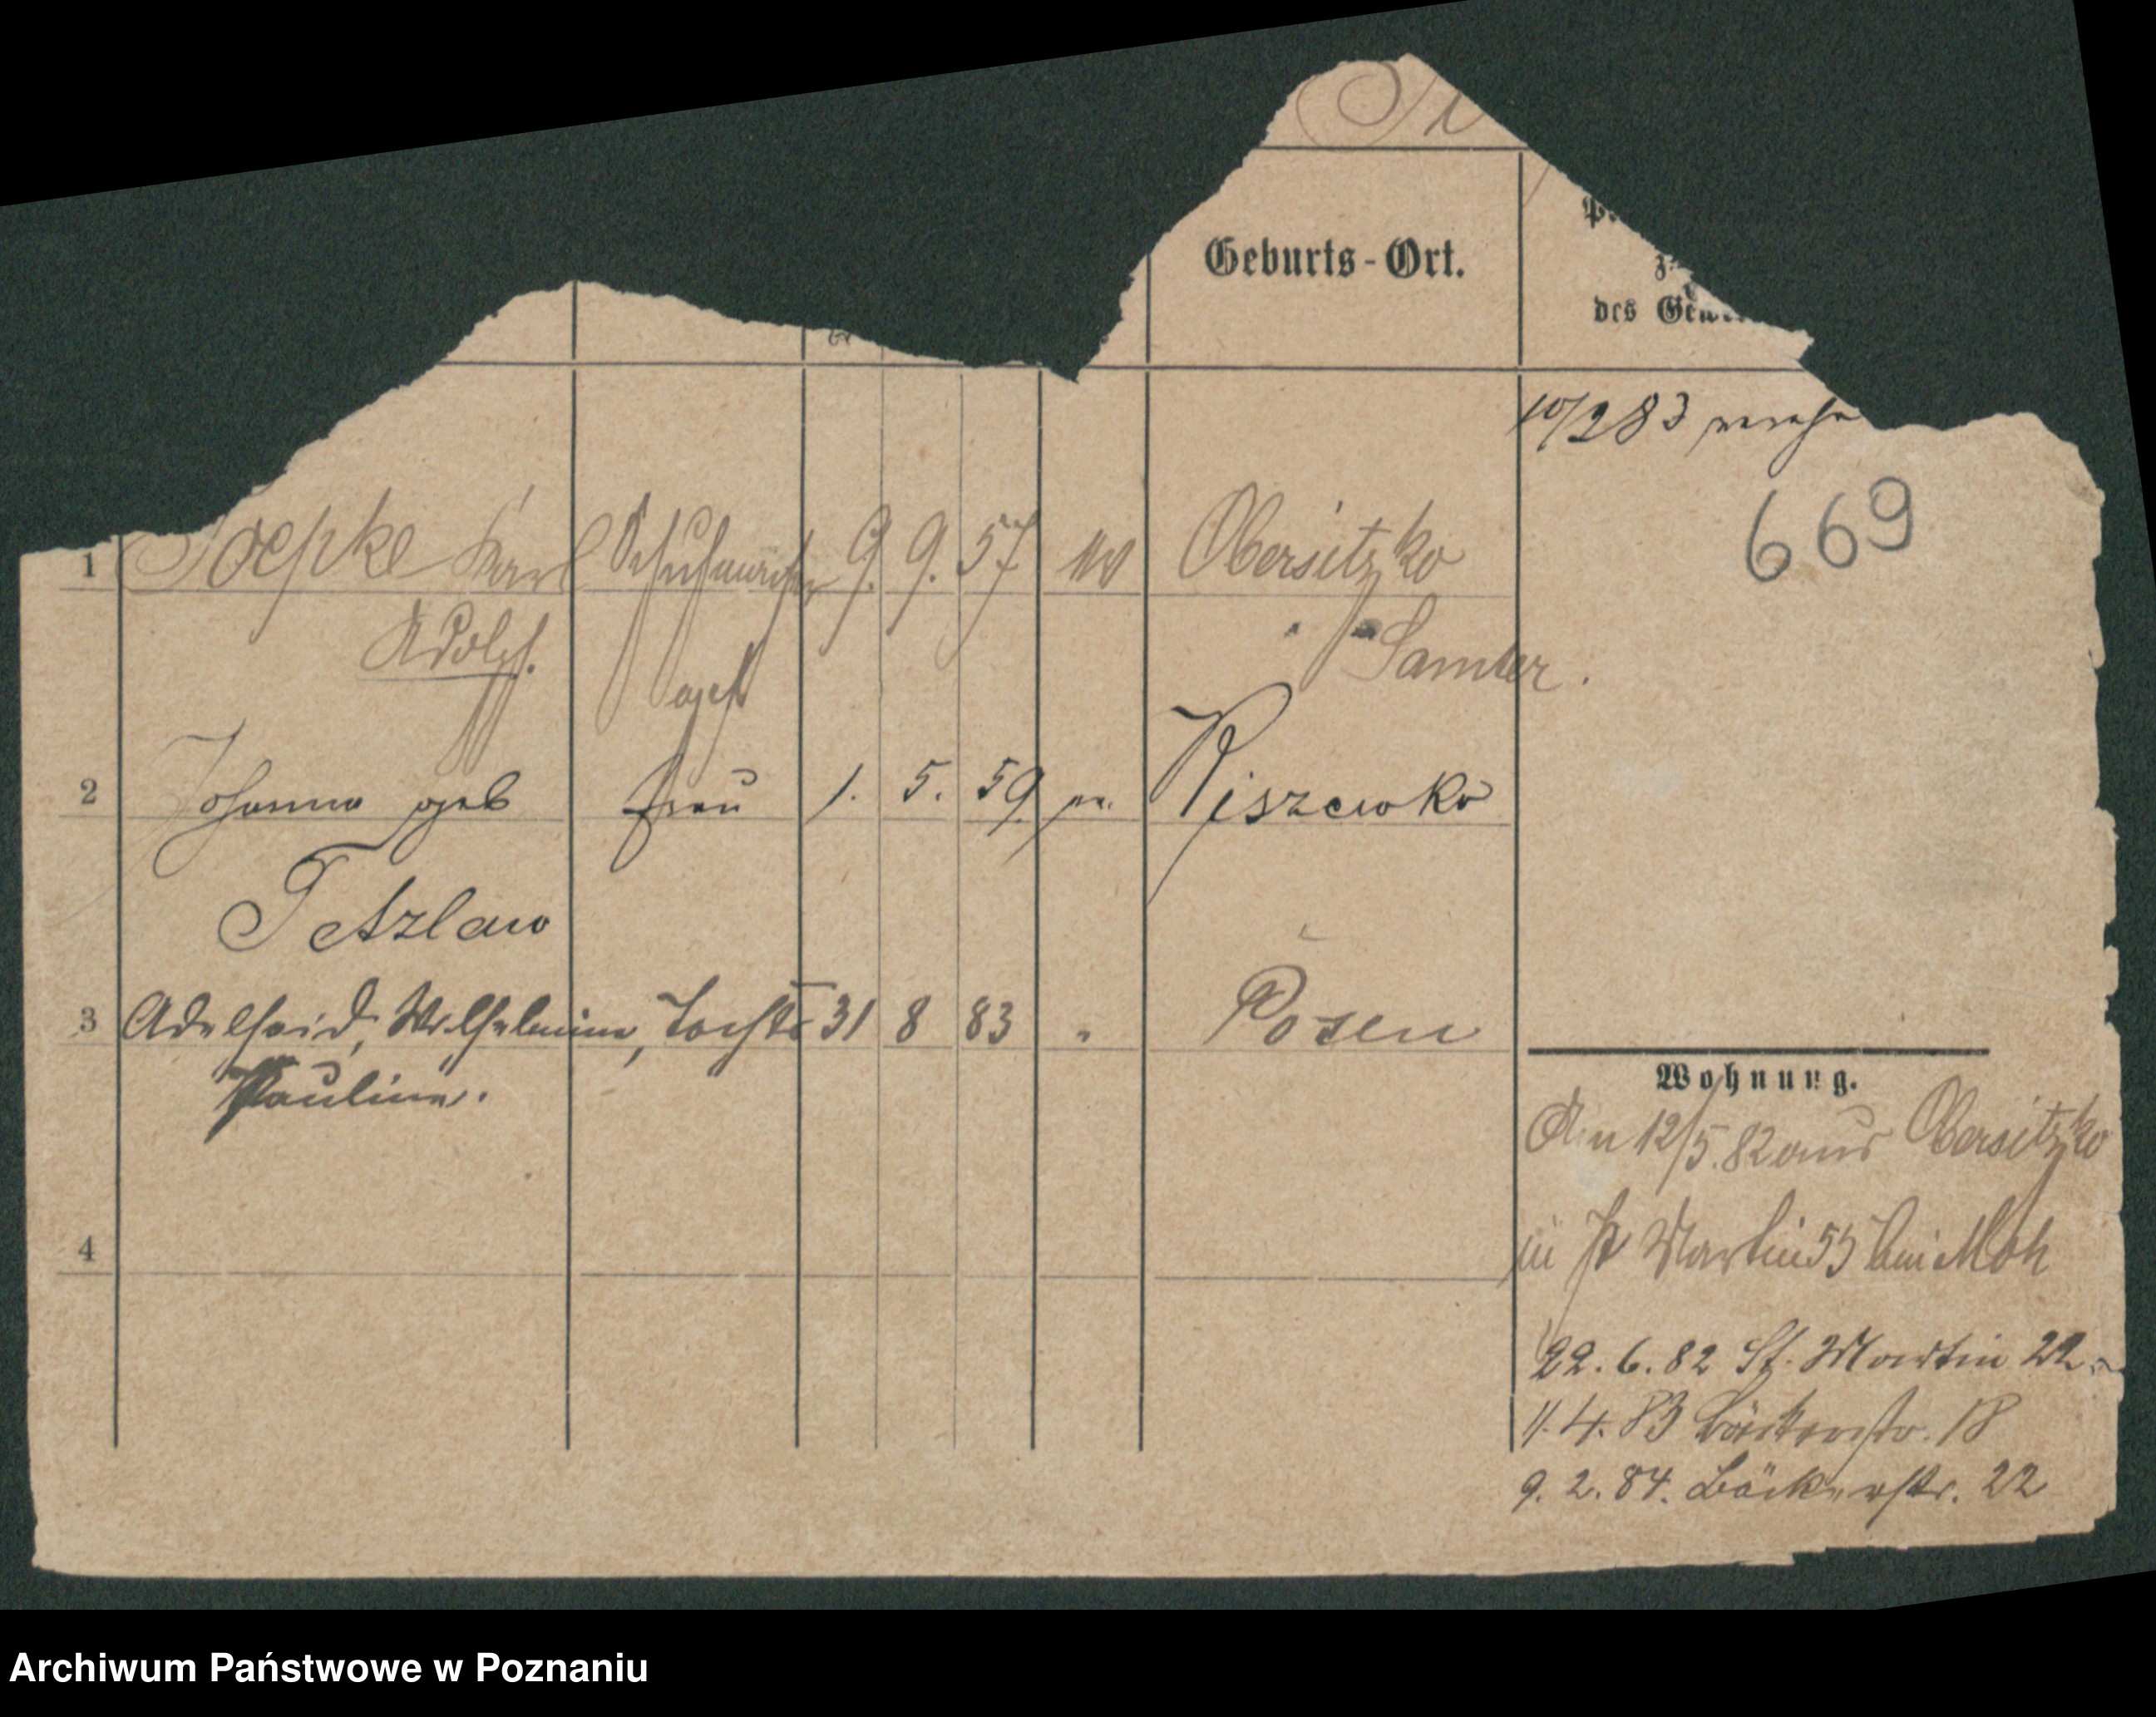 Geburts-Ort.
des
10/2 83
669
1 Toepke Karl Schuhmacher 9. 9. 57 Obersitzko
Adolf. Samter.
2 Johanna geb Frau 1. 5. 59. Kiszewko
Tetzlaw
3 Adelheid, Wilhelmine, Tochter 31 8 83 " Posen
Pauline.
4
Wohnung.
An 12/5. 82 aus Obersitzko
in St Martin 55 bei
22. 6. 82 St. Martin 22
11. 4. 83 Bäckerstr. 18
9. 2. 84. Bäckerstr. 22
Archiwum Państwowe w Poznaniu